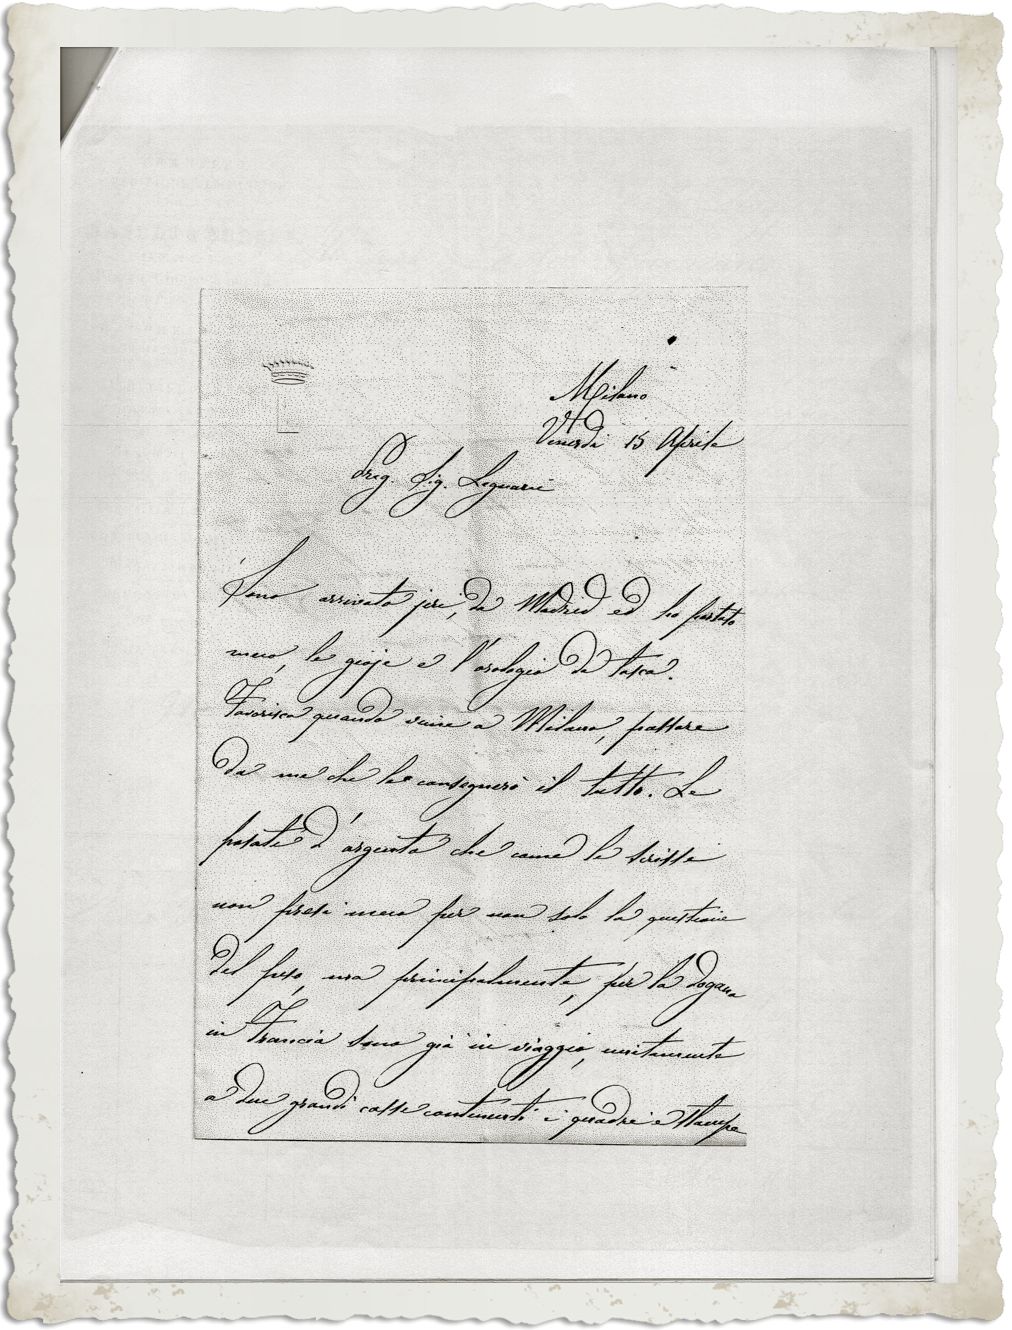 Milano
Venerdì 15 Aprile
Preg. Sig. Leguarie
Sono arrivato jeri, da Madrid ed ho portato
meco, le gioje e l'orologio da tasca.
Favorisca quando viene a Milano, passare
da me che le consegnerò il tutto. Le
posate d'argento che come le scrissi
non presi meco per non solo la questione
del peso, ma principalmente, per la dogana
in Francia sono già in viaggio, unitamente
a due grandi casse contenenti i quadri e stampe